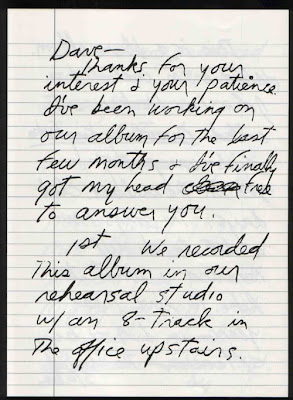 Dave—
Thanks for your
interest & your patience.
I've been working on
our album for the last
few months & I've finally
got my head free
to answer you.
1st We recorded
This album in our
rehearsal studio
w/ an 8-Track in
The office upstairs.